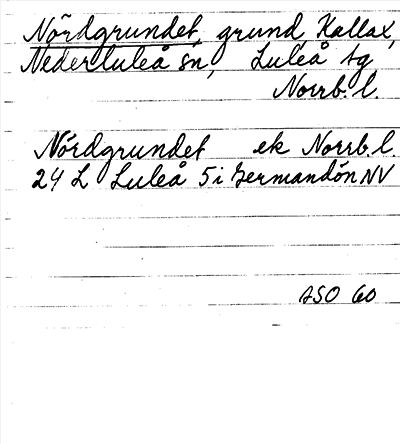 Nördgrundet, grund, Kallax,
Nederluleå sn, Luleå tg
Norrb. l.
Nördgrundet ek Norrb. l.
24 L Luleå 5i Germandön NV
ASO 60